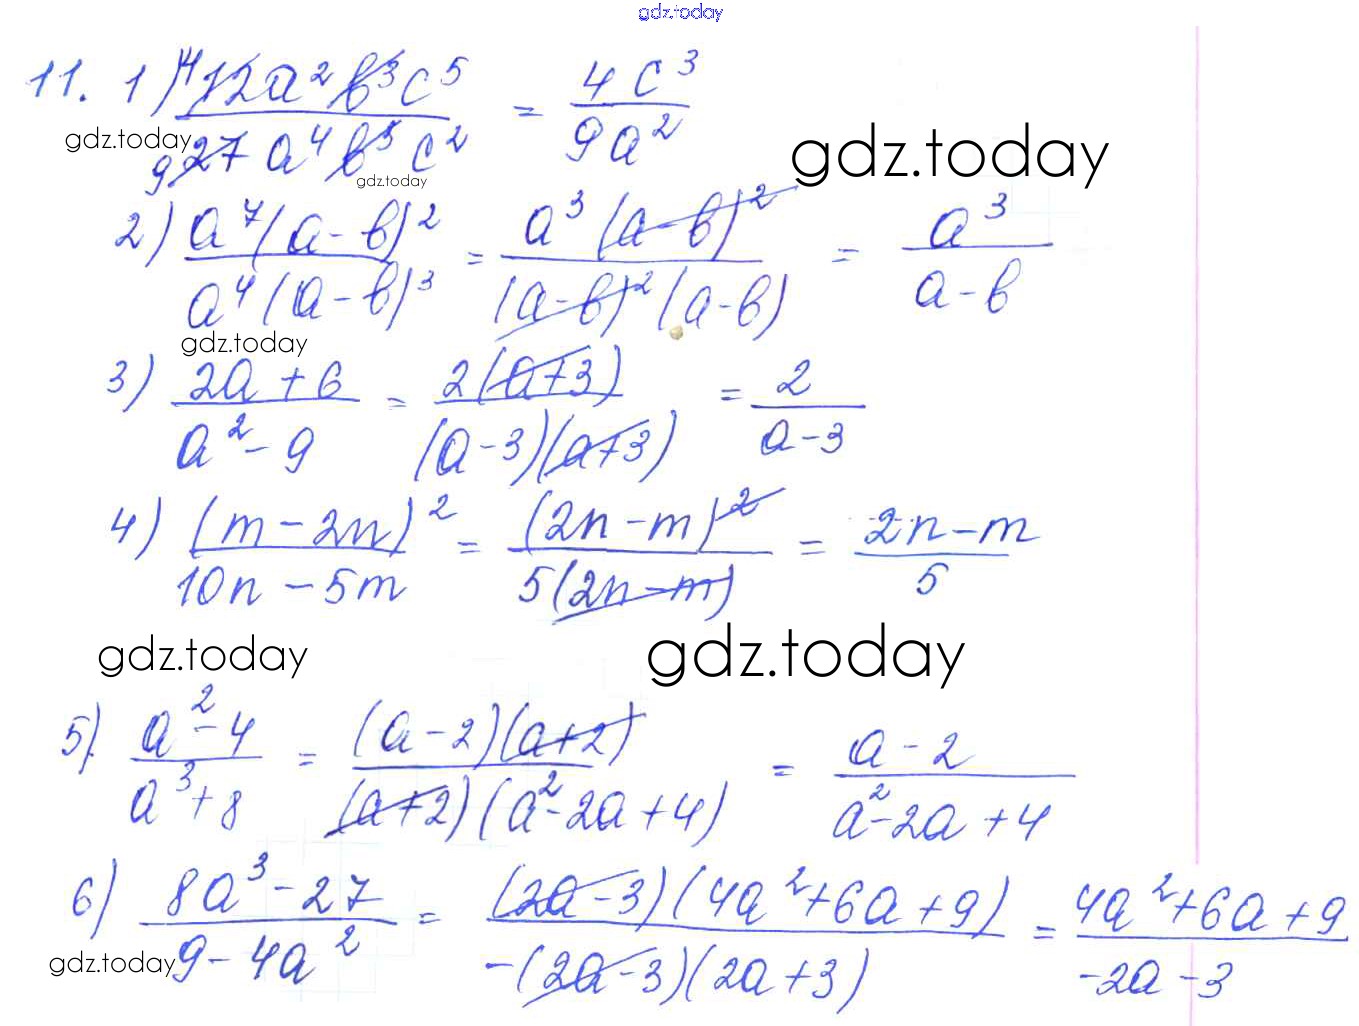 gdz.today
11. 1) 12a²b³c⁵ / 27a⁴b³c² = 4c³ / 9a²
4
9
gdz.today
gdz.today
gdz.today
2) a⁷(a-b)² / a⁴(a-b)³ = a³(a-b)² / (a-b)²(a-b) = a³ / a-b
gdz.today
3) 2a+6 / a²-9 = 2(a+3) / (a-3)(a+3) = 2 / a-3
4) (m-2n)² / 10n-5m = (2n-m)² / 5(2n-m) = 2n-m / 5
gdz.today
gdz.today
5) a²-4 / a³+8 = (a-2)(a+2) / (a+2)(a²-2a+4) = a-2 / a²-2a+4
6) 8a³-27 / 9-4a² = (2a-3)(4a²+6a+9) / -(2a-3)(2a+3) = 4a²+6a+9 / -2a-3
gdz.today